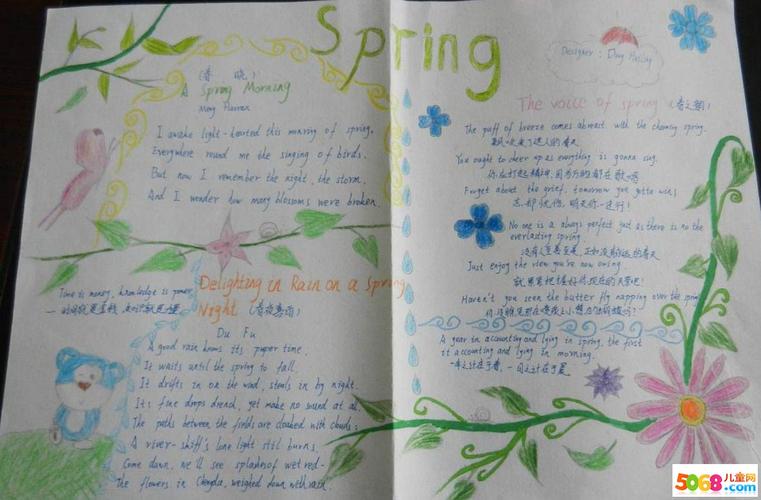 Spring
Designer : Ding
(春晓)
A Spring Morning
Meng Haoran
I awake light-hearted this morning of spring,
Everywhere round me the singing of birds.
But now I remember the night, the storm,
And I wonder how many blossoms were broken.
Time is money, knowledge is power
一 时间就是金钱，知识就是力量
Delighting in Rain on a Spring
Night (春夜喜雨)
Du Fu
A good rain knows its paper time,
It waits until the spring to fall.
It drifts in on the wind, steals in by night.
It's fine drops drench, yet make no sound at all.
The paths between the fields are cloaked with clouds;
A river-skiff's lone light still burns.
Come dawn, we'll see splashes of wet red-
The flowers in Chengdu, weighed down with rain.
The voice of spring (春之声)
The puff of breeze comes abreast with the charming spring.
You ought to cheer up as everything is gonna sing.
Forget about the grief, tomorrow you gotta win;
忘却忧伤,明天你一定行!
No one is a always perfect just as there is no the
everlasting spring.
没有人至善至美,正如没有永远的春天
Just enjoy the view you're now owing.
Haven't you seen the butterfly napping over the spring
A year in accounting and lying in spring, the first
it accounting and lying in morning.
一年之计在于春,一日之计在于晨
5068儿童网
www.5068.com